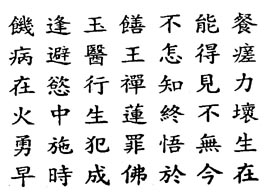 饑逢玉饍不能餐
病避醫王怎得瘥
在慾行禪知見力
火中生蓮終不壞
勇施犯罪悟無生
早時成佛於今在